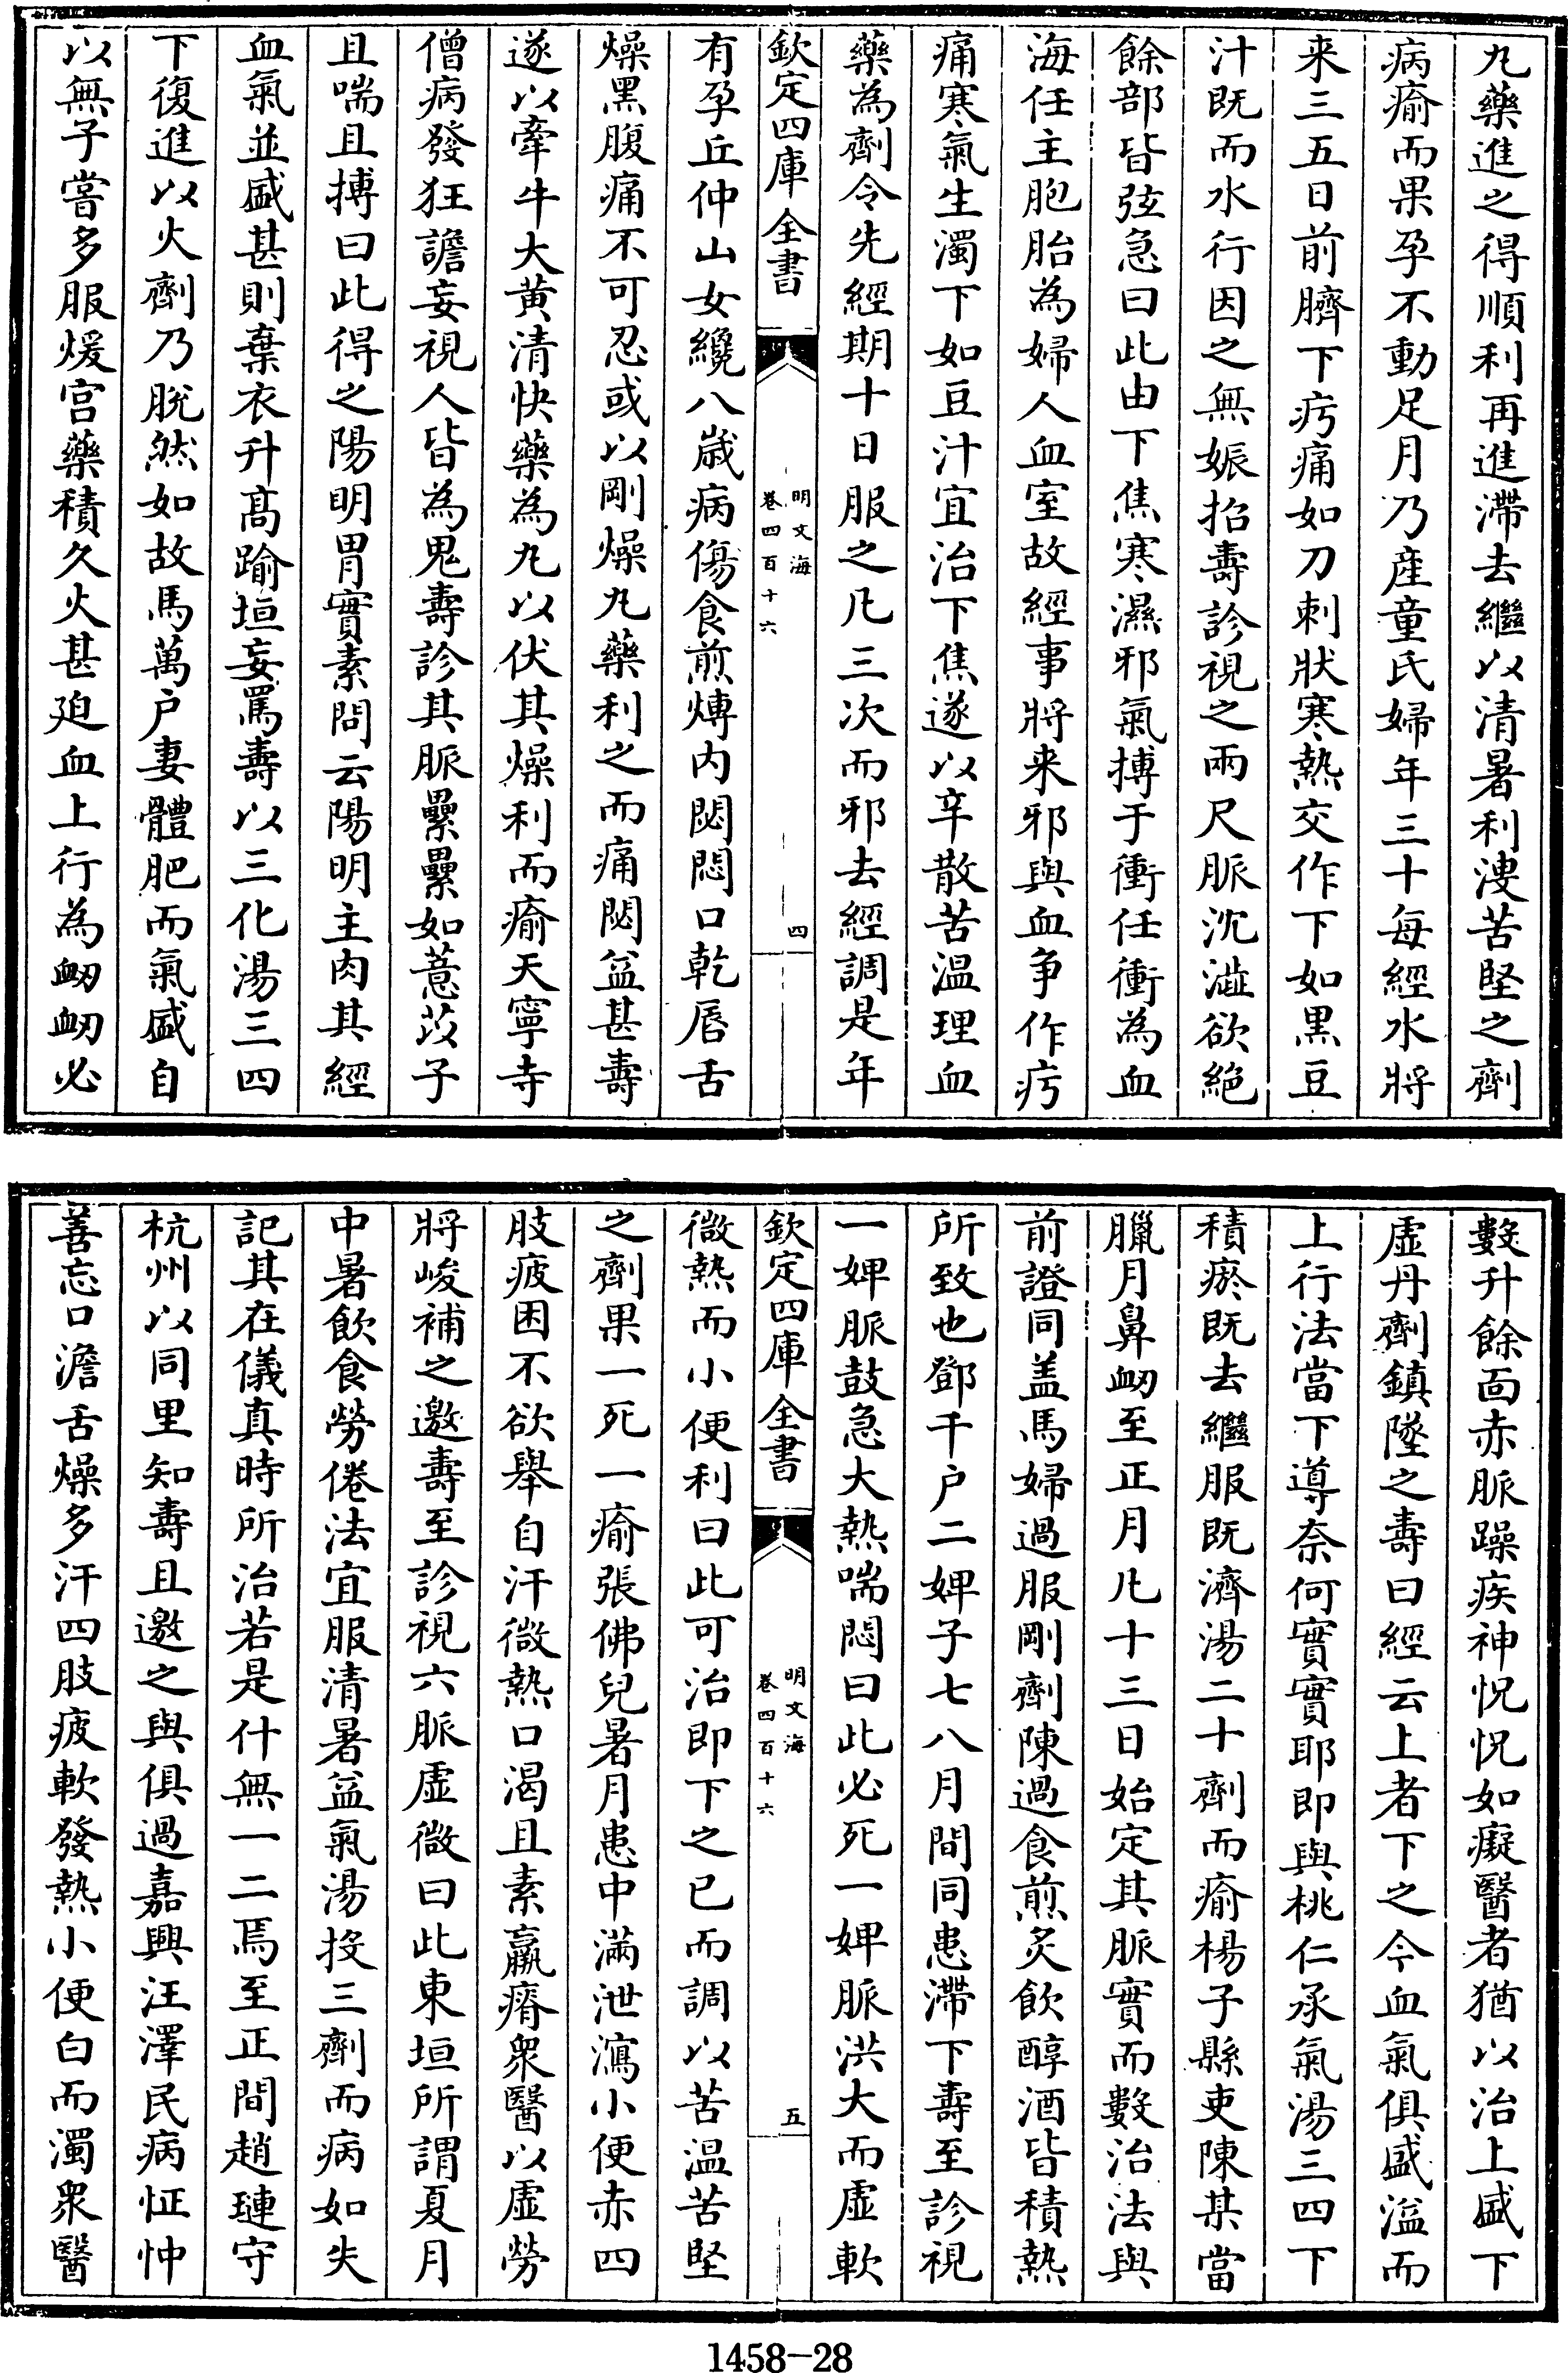 丸藥進之得順利再進滯去繼以清暑利溲苦堅之劑
病瘉而果孕不動足月乃産童氏婦年三十每經水將
来三五日前臍下疞痛如刀刺狀寒熱交作下如黒豆
汁既而水行因之無娠招壽診視之兩尺脈沈澁欲絶
餘部皆弦急曰此由下焦寒濕邪氣搏于衝任衝為血
海任主胞胎為婦人血室故經事將来邪與血争作疞
痛寒氣生濁下如豆汁宜治下焦遂以辛散苦温理血
藥為劑令先經期十日服之凡三次而邪去經調是年
欽定四庫全書
明文海
卷四百十六
四
有孕丘仲山女纔八歳病傷食煎煿内閟悶口乾唇舌
燥黒腹痛不可忍或以剛燥丸藥利之而痛閟益甚壽
遂以牽牛大黄清快藥為丸以伏其燥利而瘉天寧寺
僧病發狂譫妄視人皆為鬼壽診其脈纍纍如薏苡子
且喘且搏曰此得之陽明胃實素問云陽明主肉其經
血氣並盛甚則棄衣升髙踰垣妄罵壽以三化湯三四
下復進以火劑乃脫然如故馬萬户妻體肥而氣盛自
以無子嘗多服煖宫藥積久火甚迫血上行為衂衂必
數升餘面赤脈躁疾神怳怳如癡醫者猶以治上盛下
虚丹劑鎮墜之壽曰經云上者下之今血氣俱盛溢而
上行法當下導奈何實實耶即與桃仁承氣湯三四下
積瘀既去繼服既濟湯二十劑而瘉楊子縣吏陳某當
臘月鼻衂至正月凡十三日始定其脈實而數治法與
前證同盖馬婦過服剛劑陳過食煎炙飲醇酒皆積熱
所致也鄧千户二婢子七八月間同患滯下壽至診視
一婢脈鼓急大熱喘悶曰此必死一婢脈洪大而虚軟
欽定四庫全書
明文海
卷四百十六
五
微熱而小便利曰此可治即下之已而調以苦温苦堅
之劑果一死一瘉張佛兒暑月患中滿泄瀉小便赤四
肢疲困不欲舉自汗微熱口渴且素羸瘠衆醫以虚勞
將峻補之邀壽至診視六脈虚微曰此東垣所謂夏月
中暑飲食勞倦法宜服清暑益氣湯投三劑而病如失
記其在儀真時所治若是什無一二焉至正間趙璉守
杭州以同里知壽且邀之與俱過嘉興汪澤民病怔忡
善忘口澹舌燥多汗四肢疲軟發熱小便白而濁衆醫
1458-28